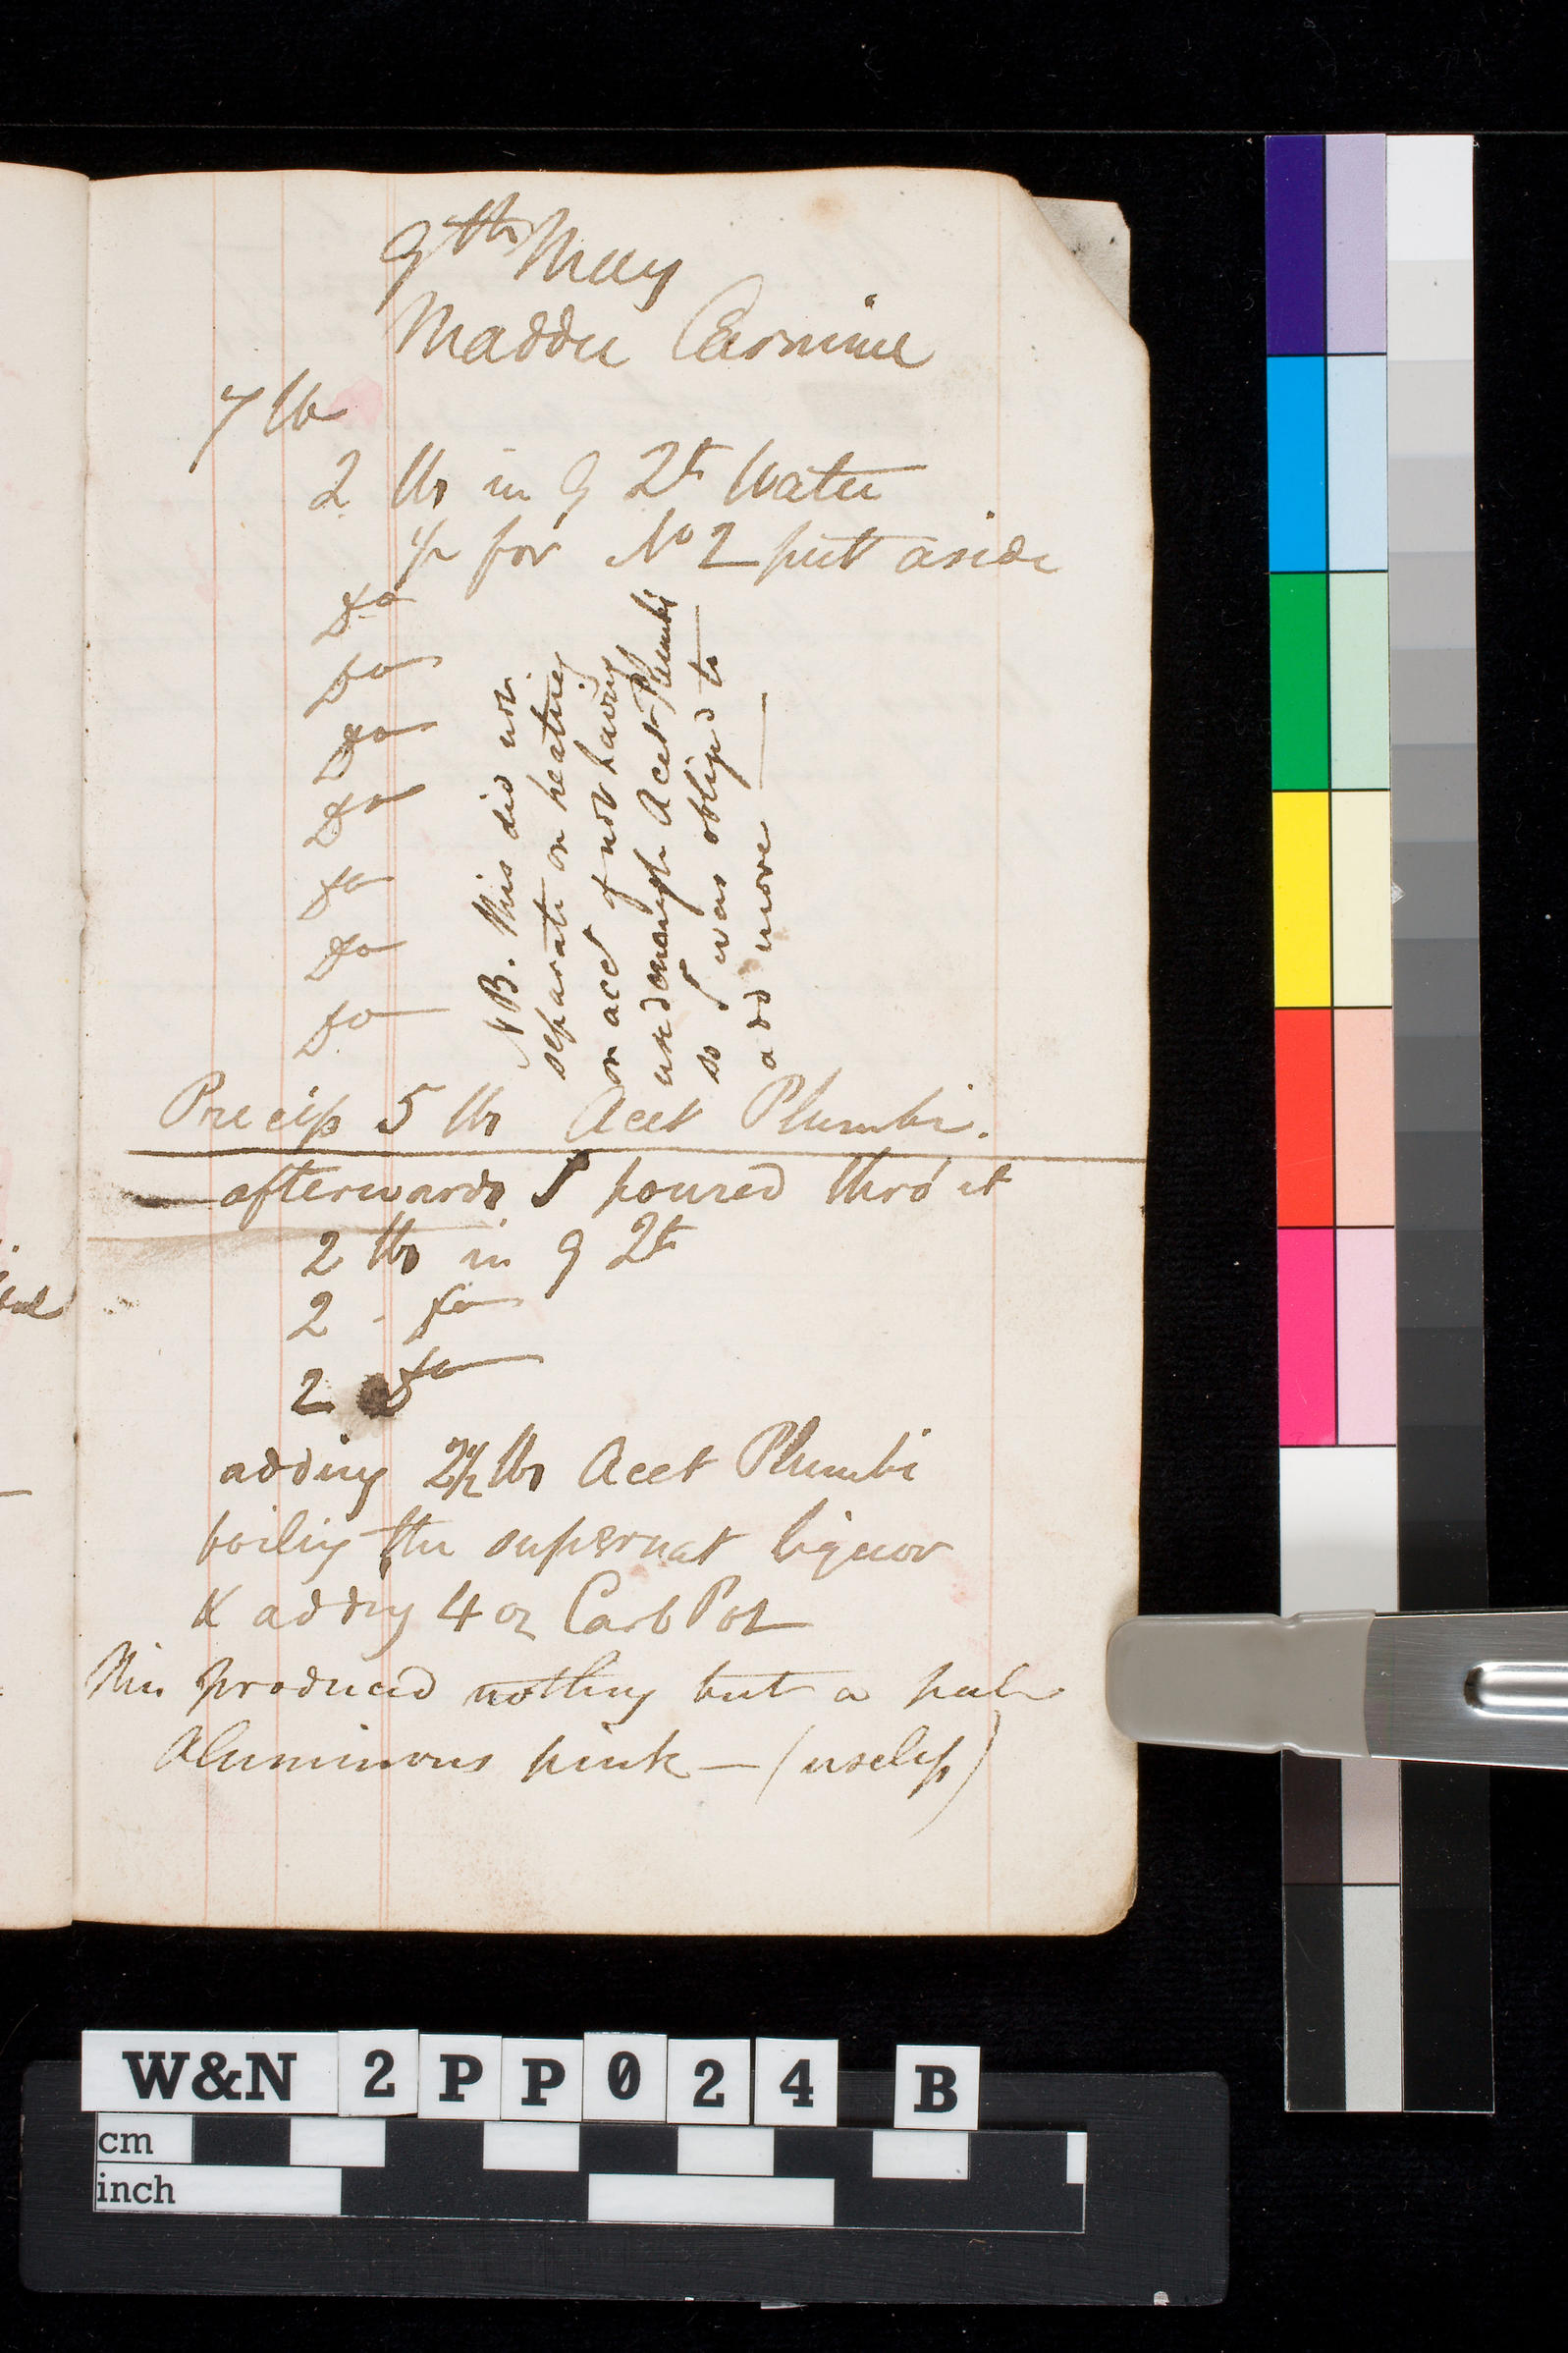 9th May
Madder Carmine
7 lb
2 lbs in 9 2ts Water
for No 2 put aside
Do
Do
Do
Do
Do
Do
Do
NB. This did not
separate on heating
on acct of not having
used enough Acet Plumbi
so I was obliged to
add more
Precip 5 lbs Acet Plumbi.
afterwards I poured thro' it
2 lbs in 9 2ts
2 - Do
2 Do
adding 2 1/2 lbs Acet Plumbi
boiling the supernat liquor
& adding 4 oz Carb Pot
This produced nothing but a pale
Aluminous pink — (useless)
W&N 2PP024 B
cm
inch